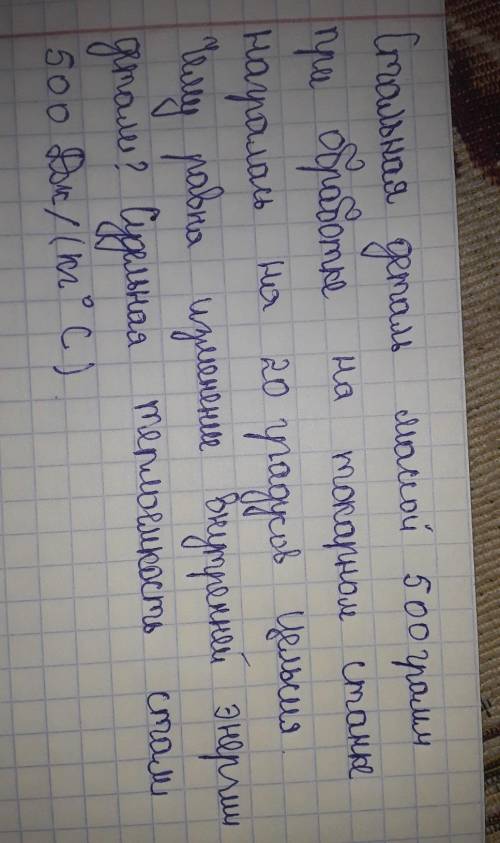 Стальная деталь массой 500 грамм
при обработке на токарном станке
награлась на 20 градусов Цельсия.
Чему равна изменение внутренней энергии
детали? Удельная теплоемкость стали
500 Дж/(кг°С).